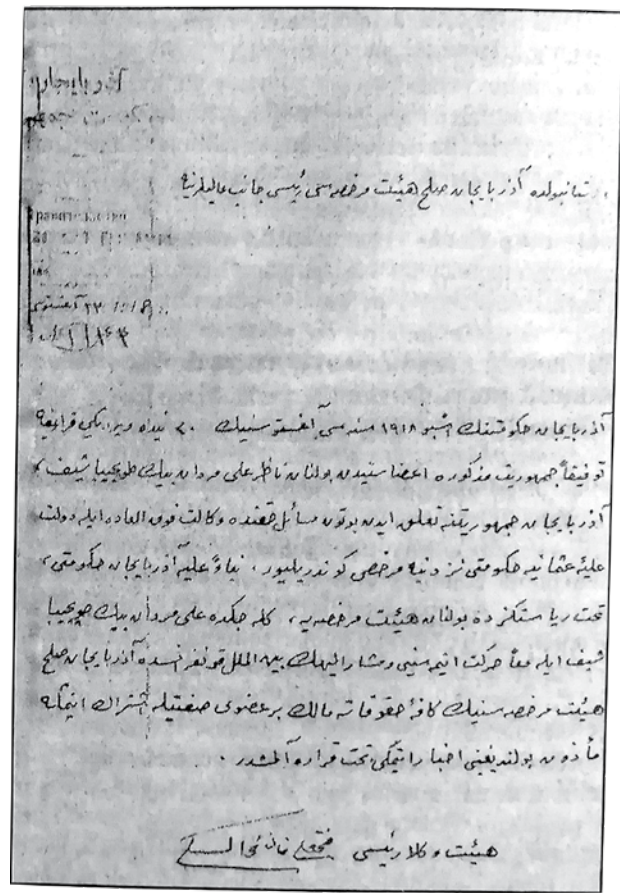 آذربایجان
استانبولده آذربایجان صلح هیئت مرخصه‌سی رئیسی جانب عالیلرینه
правительство
۲۳ آغستوس
آذربایجان حکومتنك اشبو ۱۹۱۸ سنه‌سی آغستوسنیك ۲۰ نیده ویردیکی قرارینه
توفیقاً جمهوریت مذکوره اعضاسنیدن بولنان ناظر علی مردان بیك طوپچیباشیف،
آذربایجان جمهوریتنه تعلق ایدن بوتون مسائل حقنده وکالت فوق العاده ایله دولت
علیهٔ عثمانیه حکومتی نزدنیه مرخصی کوندریلیور. بناءً علیه آذربایجان حکومتی،
تحت ریاستکزده بولنان هیئت مرخصه‌یه، کله‌جکده علی مردان بیك طوپچیبا
شیف ایله معاً حرکت ایتمه‌سنی و مشارالیهك بین الملل قونفرنسده آذربایجان صلح
هیئت مرخصه‌سنیك کافهٔ حقوقاته مالك بر عضوی صفتیله اشتراك ایتمكه
مأذون بولندیغینی اخبار ایتمکی تحت قراره آلمشدر.
هیئت وکلا رئیسی فتحعلی خان خویسكی